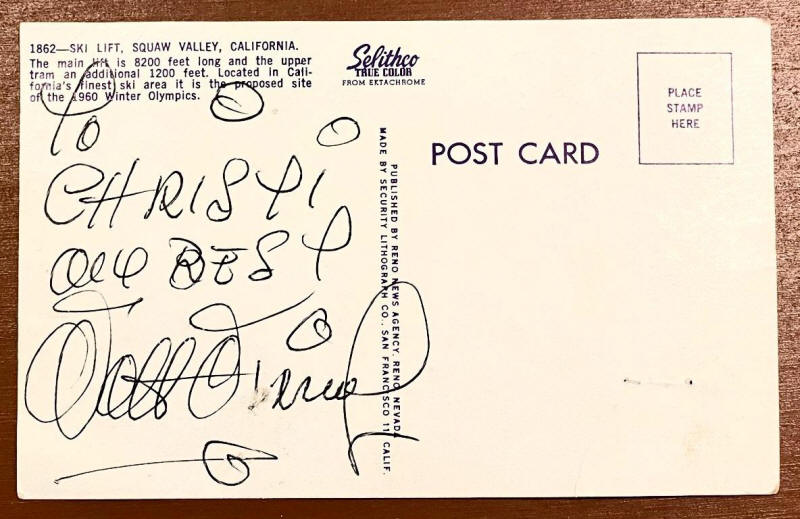 1862—SKI LIFT, SQUAW VALLEY, CALIFORNIA.
The main lift is 8200 feet long and the upper
tram an additional 1200 feet. Located in Cali-
fornia's finest ski area it is the proposed site
of the 1960 Winter Olympics.
Selithco
TRUE COLOR
FROM EKTACHROME
PLACE
STAMP
HERE
POST CARD
PUBLISHED BY RENO NEWS AGENCY, RENO, NEVADA
MADE BY SECURITY LITHOGRAPH CO., SAN FRANCISCO 11, CALIF.
TO
CHRISTI
BEST
Walt Disney